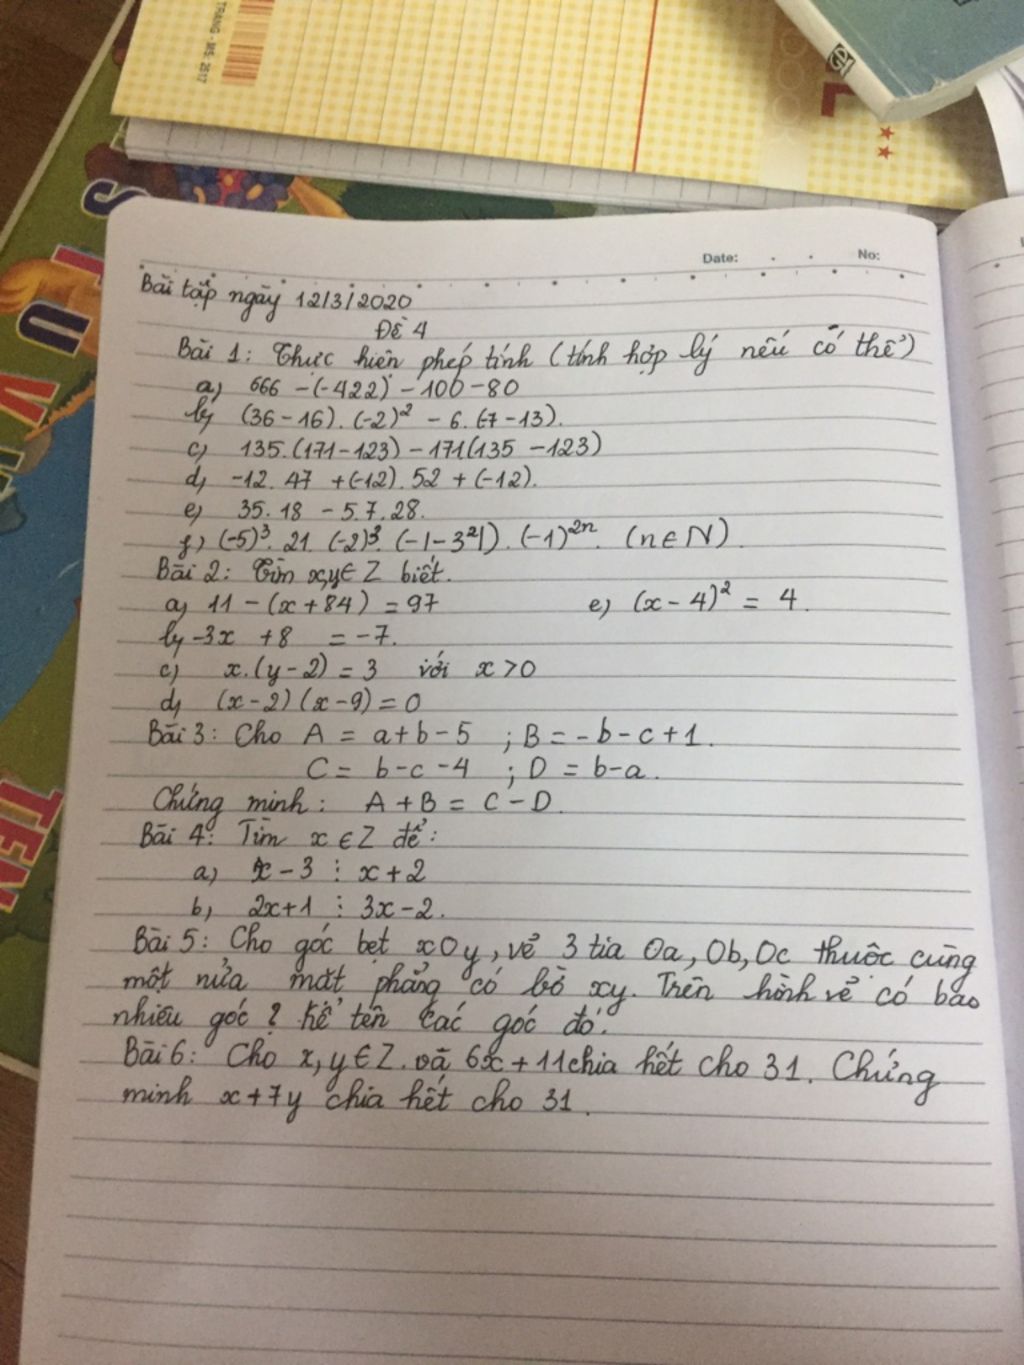 TRANG - MS: 2617
Date: No:
Bài tập ngày 12/3/2020
Đề 4
Bài 1: Thực hiện phép tính (tính hợp lý nếu có thể)
a) 666 - (-422) - 100 - 80
b) (36 - 16). (-2)² - 6. (-7 - 13).
c) 135. (171 - 123) - 171(135 - 123)
d) -12. 47 + (-12). 52 + (-12).
e) 35. 18 - 5.7.28.
f) (-5)³. 21. (-2)³. (-|-3²|). (-1)²ⁿ. (n ∈ N).
Bài 2: Tìm x,y ∈ Z biết.
a) 11 - (x + 84) = 97 e) (x - 4)² = 4.
b) -3x + 8 = -7.
c) x. (y - 2) = 3 với x > 0
d) (x - 2) (x - 9) = 0
Bài 3: Cho A = a + b - 5 ; B = - b - c + 1.
C = b - c - 4 ; D = b - a.
Chứng minh: A + B = C - D.
Bài 4: Tìm x ∈ Z để:
a) x - 3 ⋮ x + 2
b) 2x + 1 ⋮ 3x - 2.
Bài 5: Cho góc bẹt xOy, vẽ 3 tia Oa, Ob, Oc thuộc cùng
một nửa mặt phẳng có bờ xy. Trên hình vẽ có bao
nhiêu góc? Kể tên các góc đó.
Bài 6: Cho x, y ∈ Z. và 6x + 11 chia hết cho 31. Chứng
minh x + 7y chia hết cho 31.